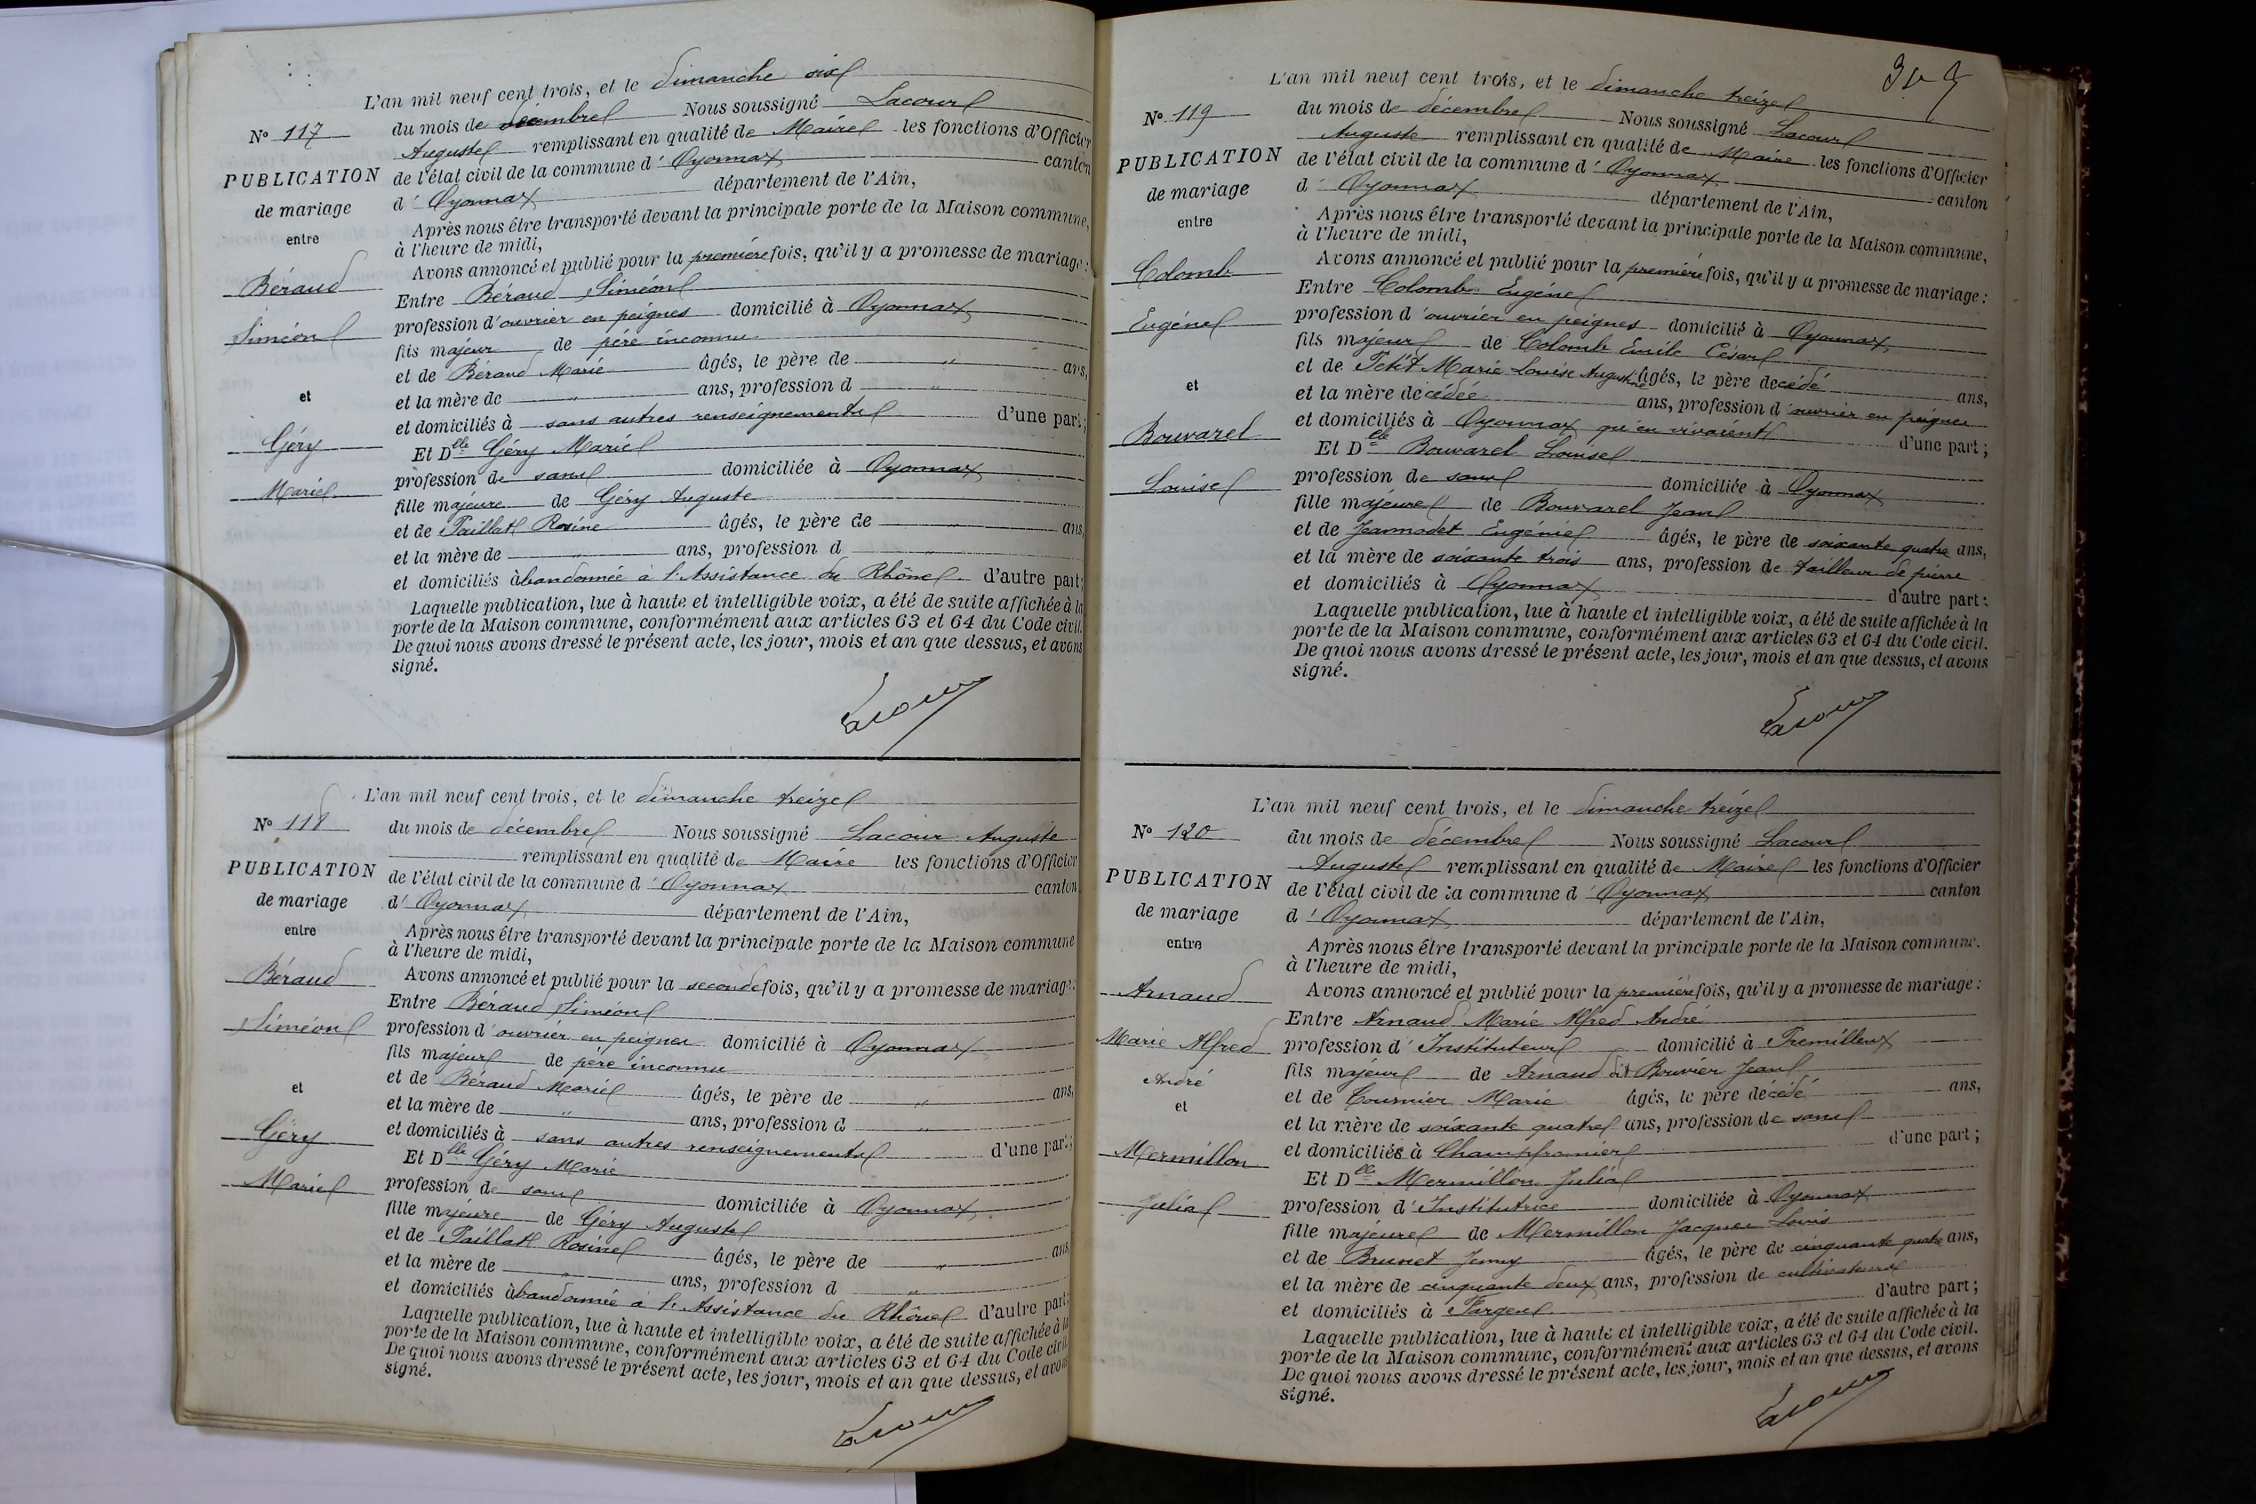 L'an mil neuf cent trois, et le dimanche six
N° 117
du mois de décembre Nous soussigné Lacour
Auguste remplissant en qualité de Maire les fonctions d'Officier
PUBLICATION
de mariage
entre
de l'état civil de la commune d' Oyonnax canton
d' Oyonnax département de l'Ain,
Après nous être transporté devant la principale porte de la Maison commune,
à l'heure de midi,
Avons annoncé et publié pour la première fois, qu'il y a promesse de mariage :
Béraud
Siméon
et
Géry
Marie
Entre Béraud Siméon
profession d'ouvrier en peignes domicilié à Oyonnax
fils majeur de père inconnu
et de Béraud Marie âgés, le père de " ans,
et la mère de " ans, profession d "
et domiciliés à sans autres renseignements d'une part ;
Et Dlle Géry Marie
profession de sans domiciliée à Oyonnax
fille majeure de Géry Auguste
et de Paillat Rosine âgés, le père de " ans,
et la mère de " ans, profession d "
et domiciliés à bandonnée à l'Assistance du Rhône d'autre part ;
Laquelle publication, lue à haute et intelligible voix, a été de suite affichée à la
porte de la Maison commune, conformément aux articles 63 et 64 du Code civil.
De quoi nous avons dressé le présent acte, les jour, mois et an que dessus, et avons
signé.
Lacour
L'an mil neuf cent trois, et le dimanche treize
N° 118
du mois de décembre Nous soussigné Lacour Auguste
remplissant en qualité de Maire les fonctions d'Officier
PUBLICATION
de mariage
entre
de l'état civil de la commune d' Oyonnax canton
d' Oyonnax département de l'Ain,
Après nous être transporté devant la principale porte de la Maison commune
à l'heure de midi,
Avons annoncé et publié pour la seconde fois, qu'il y a promesse de mariage.
Béraud
Siméon
et
Géry
Marie
Entre Béraud Siméon
profession d'ouvrier en peignes domicilié à Oyonnax
fils majeur de père inconnu
et de Béraud Marie âgés, le père de " ans,
et la mère de " ans, profession d "
et domiciliés à sans autres renseignements d'une part ;
Et Dlle Géry Marie
profession de sans domiciliée à Oyonnax
fille majeure de Géry Auguste
et de Paillat Rosine âgés, le père de " ans
et la mère de " ans, profession d "
et domiciliés à bandonnée à l'Assistance du Rhône d'autre part ;
Laquelle publication, lue à haute et intelligible voix, a été de suite affichée à la
porte de la Maison commune, conformément aux articles 63 et 64 du Code civil.
De quoi nous avons dressé le présent acte, les jour, mois et an que dessus, et avons
signé.
Lacour
L'an mil neuf cent trois, et le dimanche treize
N° 119
du mois de décembre Nous soussigné Lacour
Auguste remplissant en qualité de Maire les fonctions d'Officier
PUBLICATION
de mariage
entre
de l'état civil de la commune d' Oyonnax canton
d' Oyonnax département de l'Ain,
Après nous être transporté devant la principale porte de la Maison commune,
à l'heure de midi,
Avons annoncé et publié pour la première fois, qu'il y a promesse de mariage :
Colomb
Eugène
et
Bouvarel
Louise
Entre Colomb Eugène
profession d'ouvrier en peignes domicilié à Oyonnax
fils majeur de Colomb Emile César
et de Petit Marie Louise Augustine âgés, le père décédé ans,
et la mère décédée ans, profession d'ouvrier en peignes
et domiciliés à Oyonnax qu'en vivaient d'une part ;
Et Dlle Bouvarel Louise
profession de sans domiciliée à Oyonnax
fille majeure de Bouvarel Jean
et de Jeannodet Eugénie âgés, le père de soixante quatre ans,
et la mère de soixante trois ans, profession de tailleur de pierre
et domiciliés à Oyonnax d'autre part :
Laquelle publication, lue à haute et intelligible voix, a été de suite affichée à la
porte de la Maison commune, conformément aux articles 63 et 64 du Code civil.
De quoi nous avons dressé le présent acte, les jour, mois et an que dessus, et avons
signé.
Lacour
L'an mil neuf cent trois, et le dimanche treize
N° 120
du mois de décembre Nous soussigné Lacour
Auguste remplissant en qualité de Maire les fonctions d'Officier
PUBLICATION
de mariage
entre
de l'état civil de la commune d' Oyonnax canton
d' Oyonnax département de l'Ain,
Après nous être transporté devant la principale porte de la Maison commune.
à l'heure de midi,
Avons annoncé et publié pour la première fois, qu'il y a promesse de mariage :
Arnaud
Marie Alfred
André
et
Mermillon
Julia
Entre Arnaud Marie Alfred André
profession d'Instituteur domicilié à Premillieux
fils majeur de Arnaud dit Bouvier Jean
et de Tournier Marie âgés, le père décédé ans,
et la mère de soixante quatre ans, profession de sans
et domiciliés à Champfromier d'une part ;
Et Dlle Mermillon Julia
profession d'Institutrice domiciliée à Oyonnax
fille majeure de Mermillon Jacques Louis
et de Brunet Jenny âgés, le père de cinquante quatre ans,
et la mère de cinquante deux ans, profession de cultivateurs
et domiciliés à Farges d'autre part ;
Laquelle publication, lue à haute et intelligible voix, a été de suite affichée à la
porte de la Maison commune, conformément aux articles 63 et 64 du Code civil.
De quoi nous avons dressé le présent acte, les jour, mois et an que dessus, et avons
signé.
Lacour